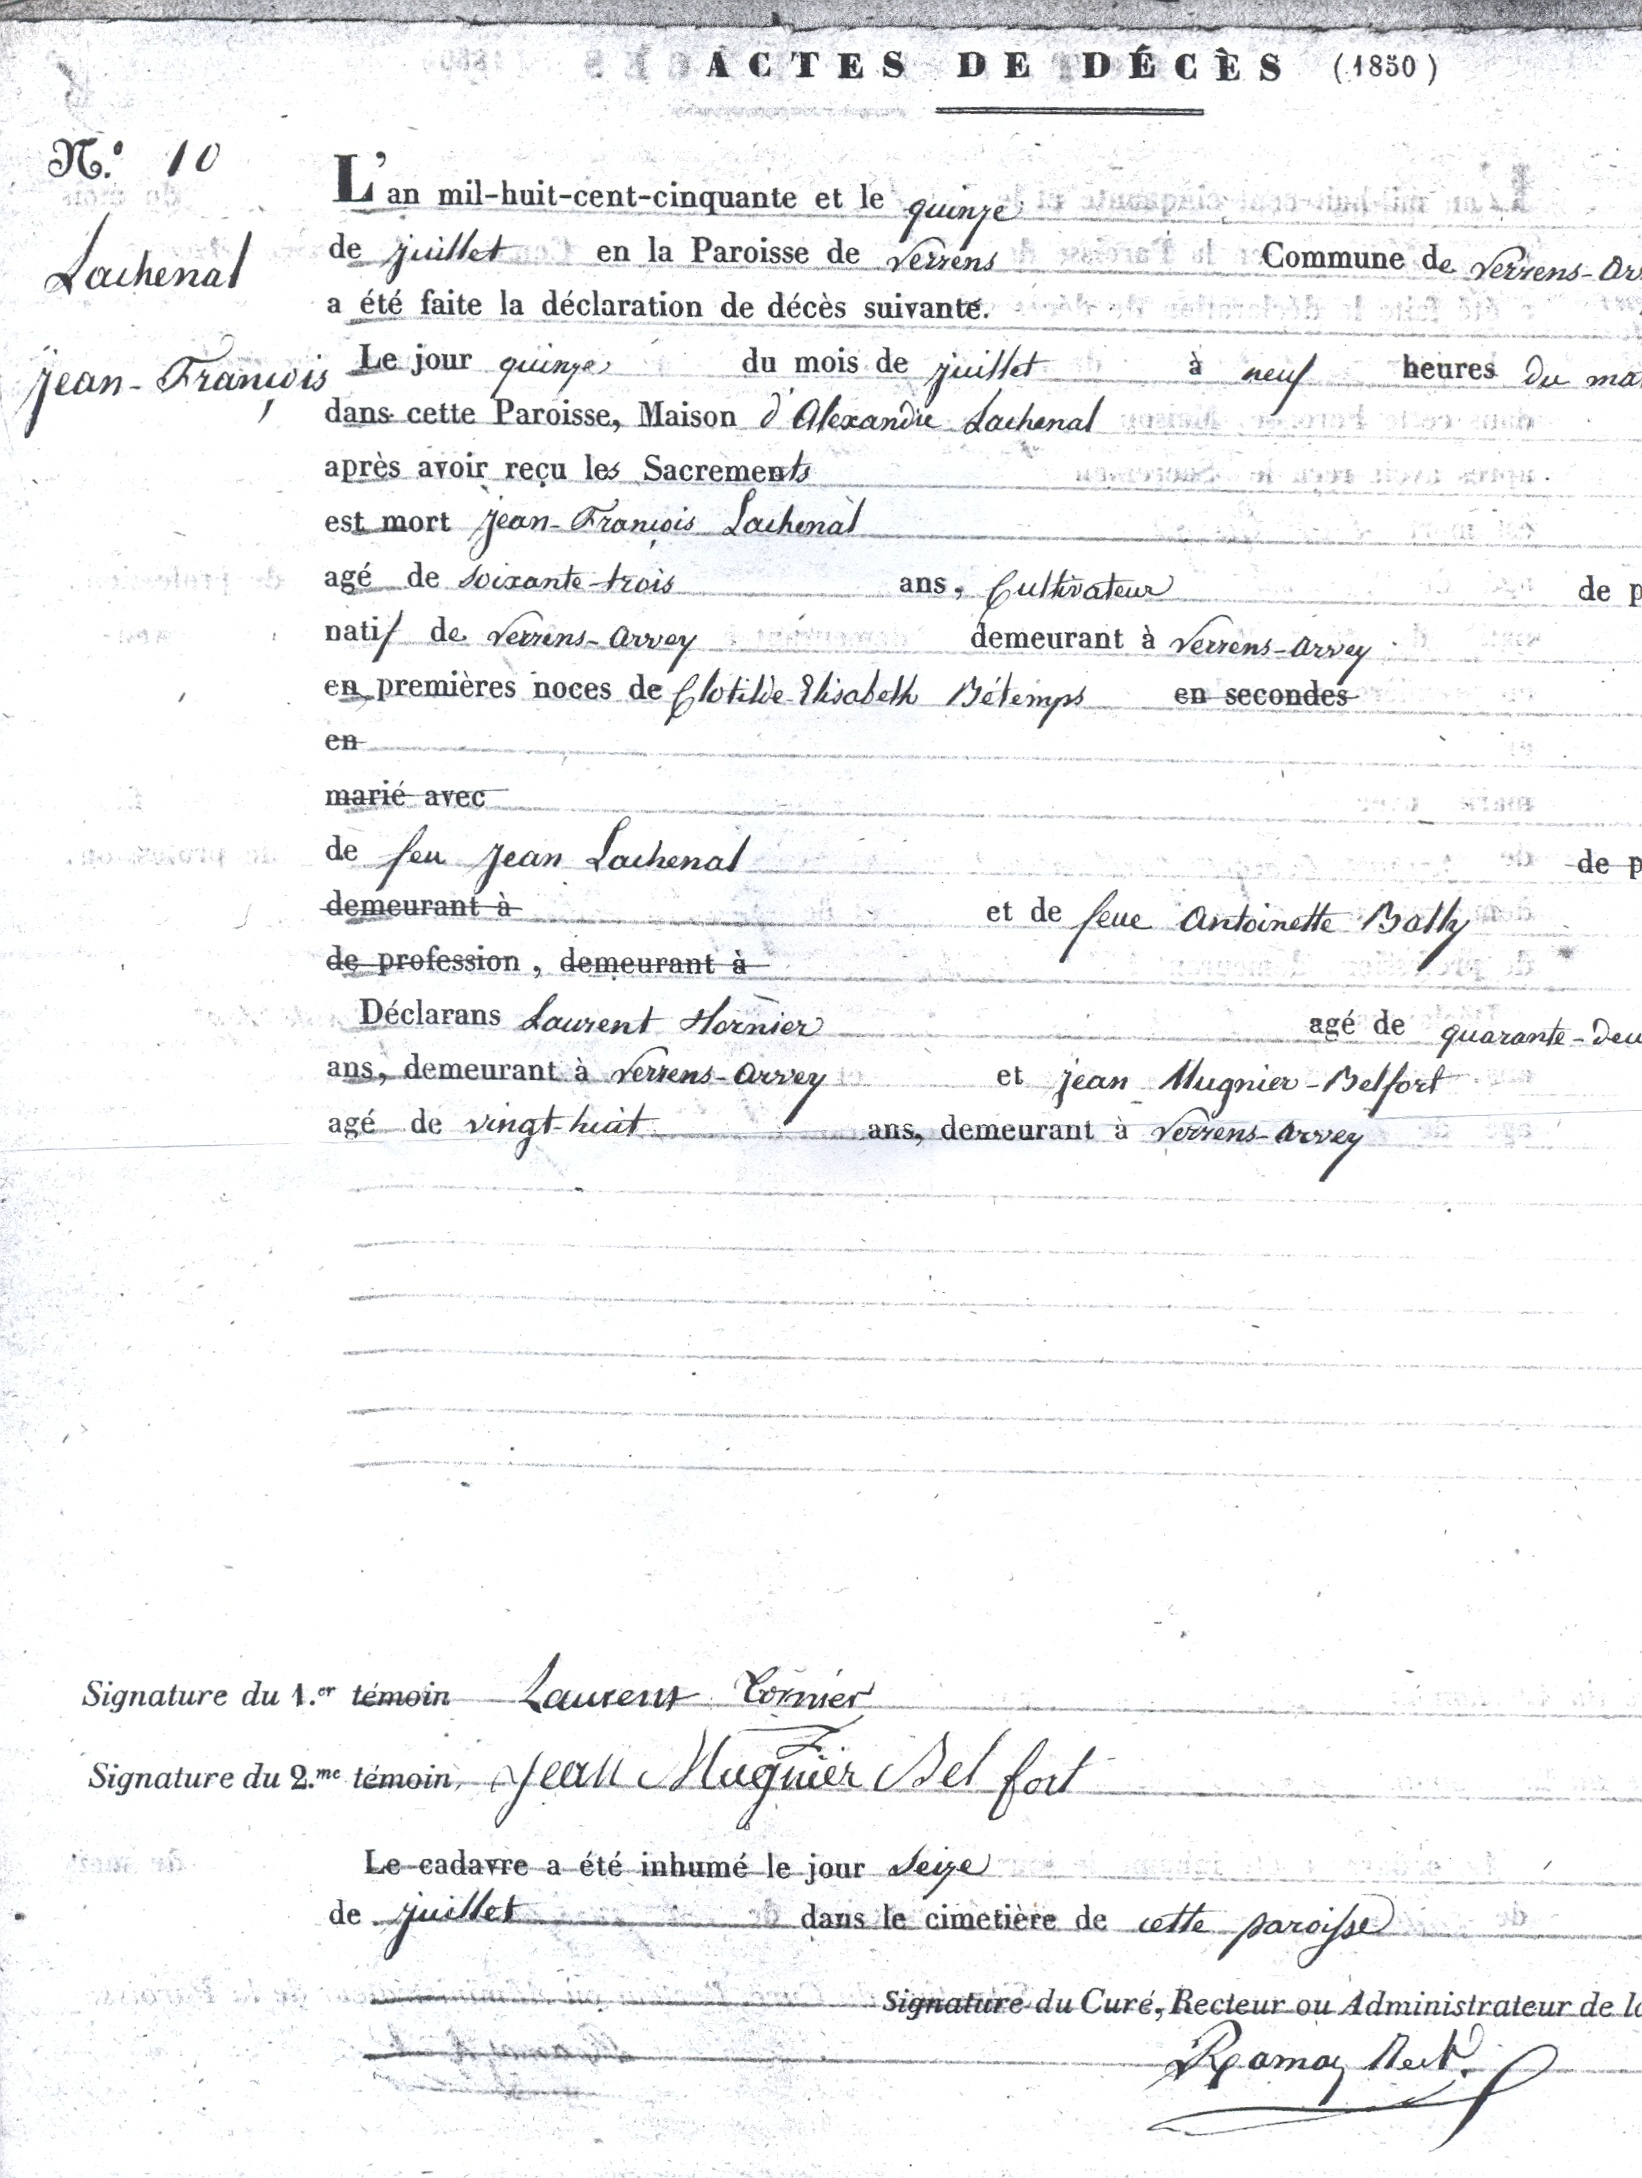 ACTES DE DÉCÈS (1850)
N.º 10
Lachenal
Jean-François
L'an mil-huit-cent-cinquante et le quinze
de juillet en la Paroisse de Verrens Commune de Verrens-Ar
a été faite la déclaration de décès suivante.
Le jour quinze du mois de juillet à neuf heures du mat
dans cette Paroisse, Maison d'Alexandre Lachenal
après avoir reçu les Sacrements
est mort Jean-François Lachenal
agé de soixante-trois ans, Cultivateur de p
natif de Verrens-Arvey demeurant à Verrens-Arvey
en premières noces de Clotilde-Elisabeth Bétemps en secondes
en
marié avec
de feu Jean Lachenal de p
demeurant à et de feue Antoinette Bally
de profession, demeurant à
Déclarans Laurent Hornier agé de quarante-deu
ans, demeurant à Verrens-Arvey et Jean Mugnier-Belfort
agé de vingt-huit ans, demeurant à Verrens-Arvey
Signature du 1.er témoin Laurent
Signature du 2.me témoin, Jean Mugnier Bel fort
Le cadavre a été inhumé le jour seize
de juillet dans le cimetière de cette paroisse
Signature du Curé, Recteur ou Administrateur de la
Rect.